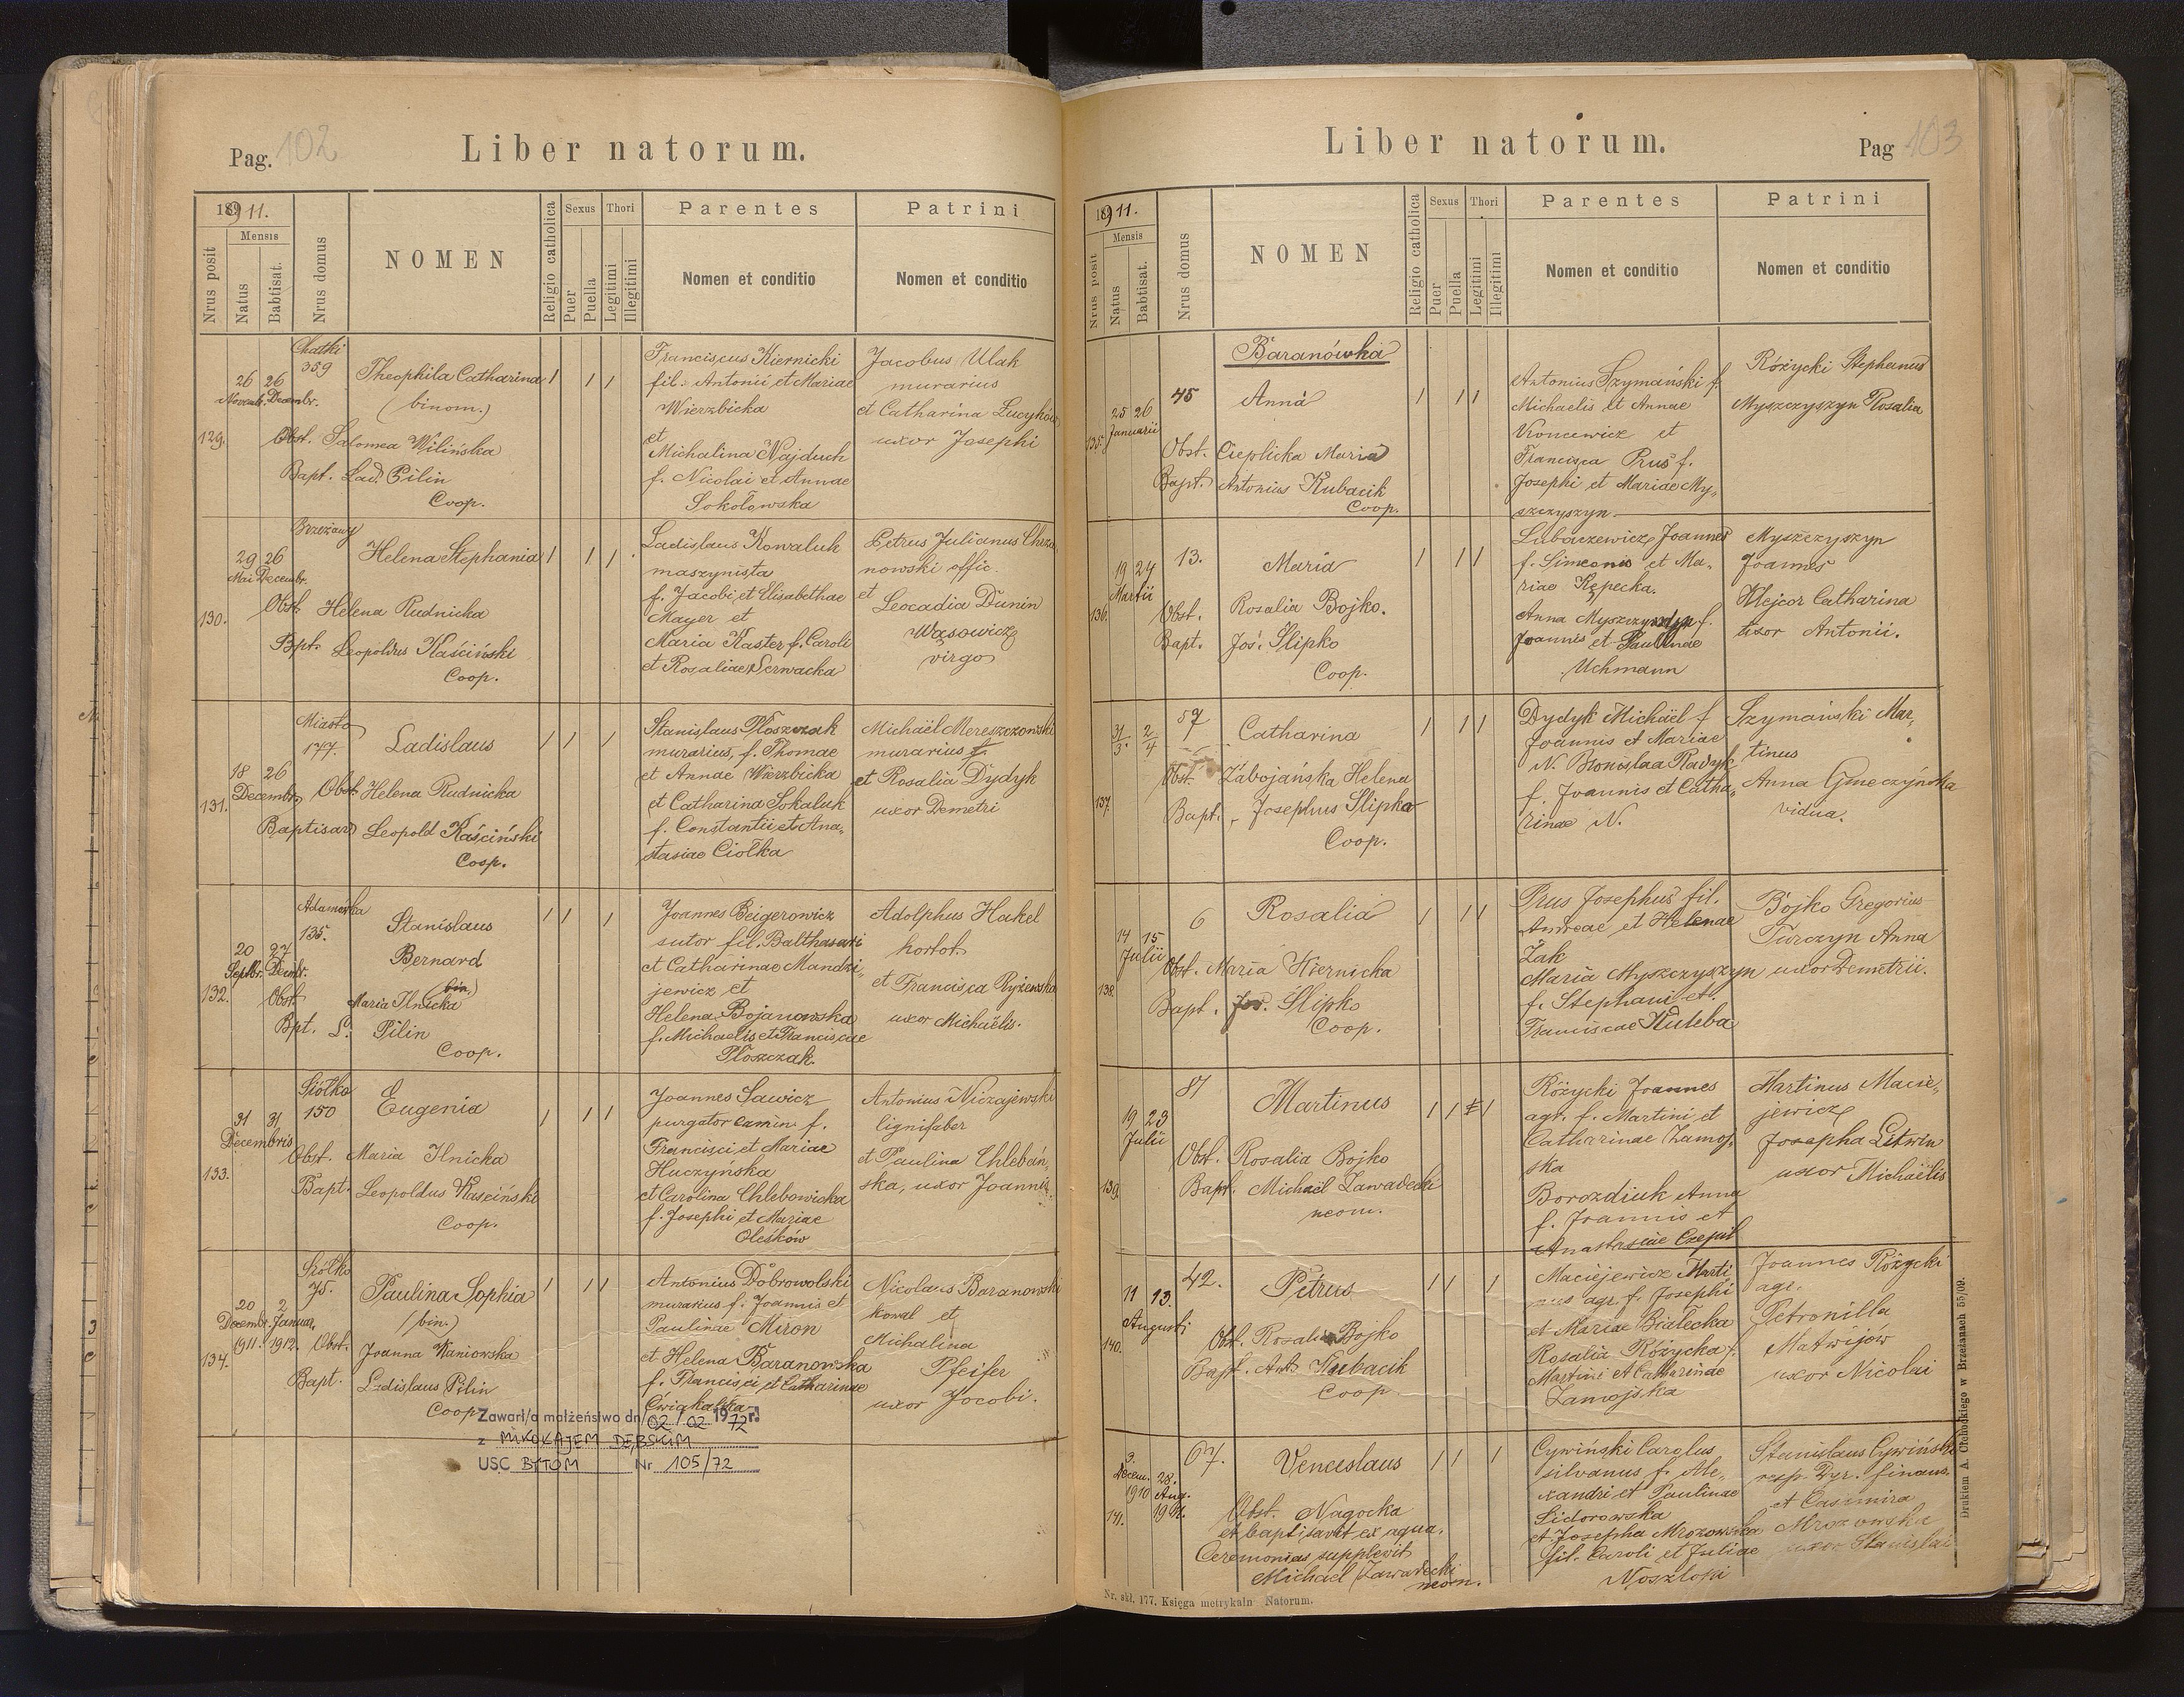 Pag. 102
Liber natorum.
1911.
Mensis
Nrus posit
Natus
Babtisat.
Nrus domus
NOMEN
Religio catholica
Sexus
Puer
Puella
Thori
Legitimi
Illegitimi
Parentes
Nomen et conditio
Patrini
Nomen et conditio
129.
26 26
Novemb. Decembr.
Chatki
359
Theophila Catharina
(binom.)
Obst. Salomea Wilińska
Bapt. Lad. Pilin
Coop.
Franciscus Kiernicki
fil. Antonii et Mariae
Wierzbicka
et
Michalina Najduch
f. Nicolai et Annae
Sokolowska
Jacobus Ulak
murarius
et Catharina
uxor Josephi
130.
29 26
Mai Decembr.
Brzeżany
Helena Stephania
Obst. Helena Rudnicka
Bpt. Leopoldus Kaściński
Coop.
Ladislaus Kowaluk
maszynista
f. Jacobi et Elisabethae
Mayer et
Maria Kaster f. Caroli
et Rosaliae Serwacka
Petrus Julianus Chrza
nowski offic.
et
Leocadia Dunin
Wąsowicz
virgo
131.
18 26
Decembr.
Miasto
177.
Ladislaus
Obst. Helena Rudnicka
Baptisavit Leopold Kaściński
Coop.
Stanislaus Płoszczak
murarius, f. Thomae
et Annae Wierzbicka
et Catharina Sokaluk
f. Constantii et Ana„
stasiae Ciołka
Michaël Mereszczowski
murarius
et Rosalia Dydyk
uxor Demetri
132.
20 27
Septbr. Decmbr.
Adamówka
135.
Stanislaus
Bernard
(bin.)
Obst. Maria Ilnicka
Bpt. L. Pilin
Coop.
Joannes Beigerowicz
sutor fil. Balthasari
et Catharinae Mandzi„
jewicz et
Helena Bojanowska
f. Michaelis et Franciscae
Płoszczak.
Adolphus Hakel
hortot.
et Francisca Ryżewska
uxor Michaëlis.
133.
31 31
Decembris
Siółko
150
Eugenia
Obst. Maria Ilnicka
Bapt. Leopoldus Kaściński
Coop.
Joannes Sawicz
purgator camin. f.
Francisci et Mariae
Huczyńska
et Carolina Chlebowicka
f. Josephi et Mariae
Oleśków
Antonius Niczajewski
lignifaber
et Paulina Chlebań„
ska, uxor Joannis.
134.
20 2
Decemb. Januar.
1911. 1912.
Siółko
75.
Paulina Sophia
(bin.)
Obst. Joanna Kaniowska
Bapt. Ladislaus Pilin
Coop.
Antonius Dobrowolski
murarius f. Joannis et
Paulinae Miron
et Helena Baranowska
f. Francisci et Catharinae
Ćwiąkalska
Nicolaus Baranowski
kowal et
Michalina
Pfeifer
uxor Jacobi.
Zawarł/a małżeństwo dn. 02/02 1972 r.
z MIKOŁAJEM DĘBSKIM
USC BYTOM Nr 105/72
Liber natorum.
Pag 103
1911.
Mensis
Nrus posit
Natus
Babtisat.
Nrus domus
NOMEN
Religio catholica
Sexus
Puer
Puella
Thori
Legitimi
Illegitimi
Parentes
Nomen et conditio
Patrini
Nomen et conditio
Baranówka
135.
25 26
Januarii
45
Anna
Obst. Cieplicka Maria
Bapt. Antonius Kubacik
Coop.
Antonius Szymański f.
Michaelis et Annae
Koncewicz et
Francisca Prus f.
Josephi et Mariae My„
szczyszyn
Różycki Stephanus
Myszczyszyn Rosalia
136.
19 24
Martii
13.
Maria
Obst. Rosalia Bojko.
Bapt. Jos. Slipko
Coop.
Lubaczewicz Joannes
f. Simeonis et Ma„
riae Kępecka.
Anna Myszczyszyn f.
Joannis et Paulinae
Uchmann
Myszczyszyn
Joannes
Wejcor Catharina
uxor Antonii.
137.
31/3. 2/4
57
Catharina
Obst. Zabojańska Helena
Bapt. Josephus Slipka
Coop.
Dydyk Michaël f.
Joannis et Mariae
N. Bronislaa Radyk
f. Joannis et Catha„
rinae N.
Szymański Mar„
tinus
Anna Gmeczyńska
vidua.
138.
14 15
Julii
6
Rosalia
Obst. Maria Kiernicka
Bapt. Jos. Slipko
Coop.
Prus Josephus fil.
Andreae et Helenae
Żak
Maria Myszczyszyn
f. Stephani et
Franciscae Kuleba
Bojko Gregorius
Turczyn Anna
uxor Demetrii.
139.
19 23
Julii
87
Martinus
Obst. Rosalia Bojko
Bapt. Michaël Zawadecki
neom.
Różycki Joannes
agr. f. Martini et
Catharinae Zamoj„
ska
Borozdiuk Anna
f. Joannis et
Anastasiae Czepil
Martinus Macie„
jewicz
Josepha Litwin
uxor Michaëlis
140.
11 13.
Augusti
42.
Petrus
Obst. Rosalia Bojko
Bapt. Ant. Kubacik
Coop
Maciejewicz Marti
nus agr. f. Josephi
et Mariae Białecka
Rosalia Różycka f.
Martini et Catharinae
Zamojska
Joannes Różycki
agr.
Petronilla
Matwijów
uxor Nicolai
141.
3. Decem. 1910
28. Aug. 1911.
67.
Venceslaus
Obst. Nagocka
et baptisavit ex aqua.
Ceremonias supplevit
Michaël Zawadecki
neom.
Cywiński Carolus
silvanus f. Ale„
xandri et Paulinae
Sidorowska
et Josepha Mrozowska
fil. Caroli et Juliae
Noszloki
Stanislaus Cywiński
resp. Dyr. finans.
et Casimira
Mrozowska
uxor Stanislai
Drukiem A. Cichockiego w Brzeżanach 55/09.
Nr. skł. 177. Księga metrykaln Natorum.